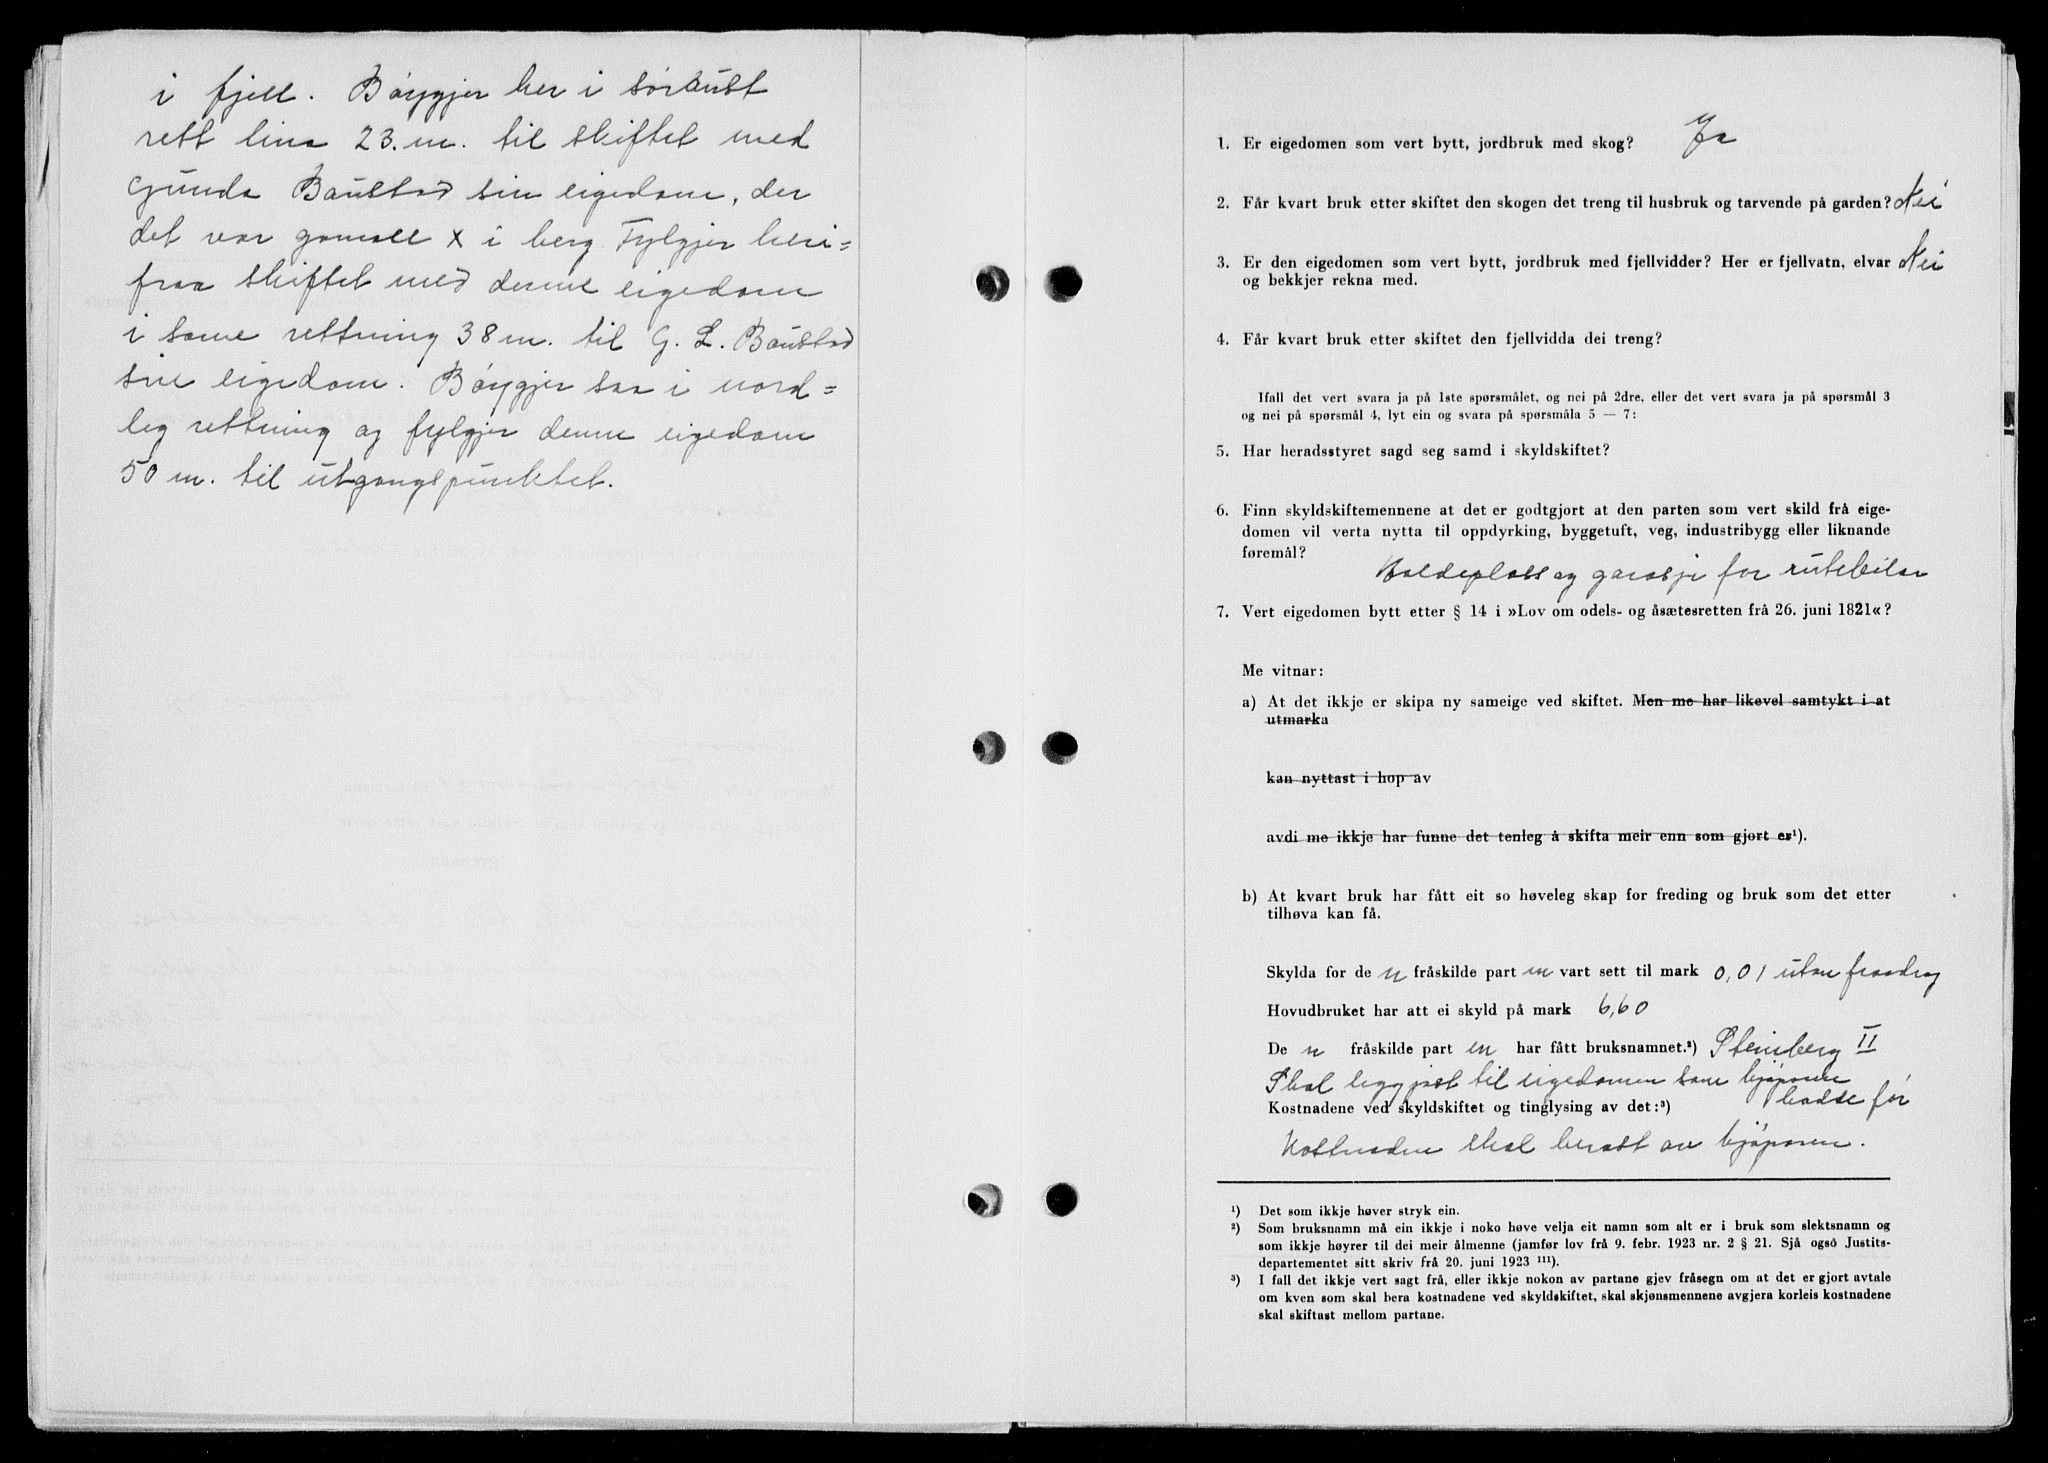 i fjell. Bøygjer her i søraust
rett lina 23. m. til skiftet med
Gunda Baustad sin eigedom, der
det var gamall x i berg. Fylgjer heri=
fraa skiftet med denne eigedom
i same rettning 38 m. til G. L. Baustad
sin eigedom. Bøygjer saa i nord=
leg rettning og fylgjer denne eigedom
50 m. til utgangspunktet.
1. Er eigedomen som vert bytt, jordbruk med skog? Ja
2. Får kvart bruk etter skiftet den skogen det treng til husbruk og tarvende på garden? Nei
3. Er den eigedomen som vert bytt, jordbruk med fjellvidder? Her er fjellvatn, elvar Nei
og bekkjer rekna med.
4. Får kvart bruk etter skiftet den fjellvidda dei treng?
Ifall det vert svara ja på 1ste spørsmålet, og nei på 2dre, eller det vert svara ja på spørsmål 3
og nei på spørsmål 4, lyt ein og svara på spørsmåla 5 — 7:
5. Har heradsstyret sagd seg samd i skyldskiftet?
6. Finn skyldskiftemennene at det er godtgjort at den parten som vert skild frå eige-
domen vil verta nytta til oppdyrking, byggetuft, veg, industribygg eller liknande
føremål?
Holdeplass og garasje for rutebilar
7. Vert eigedomen bytt etter § 14 i »Lov om odels- og åsætesretten frå 26. juni 1821«?
Me vitnar:
a) At det ikkje er skipa ny sameige ved skiftet. Men me har likevel samtykt i at
utmarka
kan nyttast i hop av
avdi me ikkje har funne det tenleg å skifta meir enn som gjort er¹).
b) At kvart bruk har fått eit so høveleg skap for freding og bruk som det etter
tilhøva kan få.
Skylda for de n fråskilde part en vart sett til mark 0,01 utan fraadrag
Hovudbruket har att ei skyld på mark 6,60
De n fråskilde part en har fått bruksnamnet.²) Steinberg II
Skal leggjast til eigedomen som kjøparen
Kostnadene ved skyldskiftet og tinglysing av det:³) hadde før
Kostnaden skal berast av kjøparen.
¹) Det som ikkje høver stryk ein.
²) Som bruksnamn må ein ikkje i noko høve velja eit namn som alt er i bruk som slektsnamn og
som ikkje høyrer til dei meir ålmenne (jamfør lov frå 9. febr. 1923 nr. 2 § 21. Sjå også Justits-
departementet sitt skriv frå 20. juni 1923 ¹¹¹).
³) I fall det ikkje vert sagt frå, eller ikkje nokon av partane gjev fråsegn om at det er gjort avtale
om kven som skal bera kostnadene ved skyldskiftet, skal skjønsmennene avgjera korleis kostnadene
skal skiftast mellom partane.